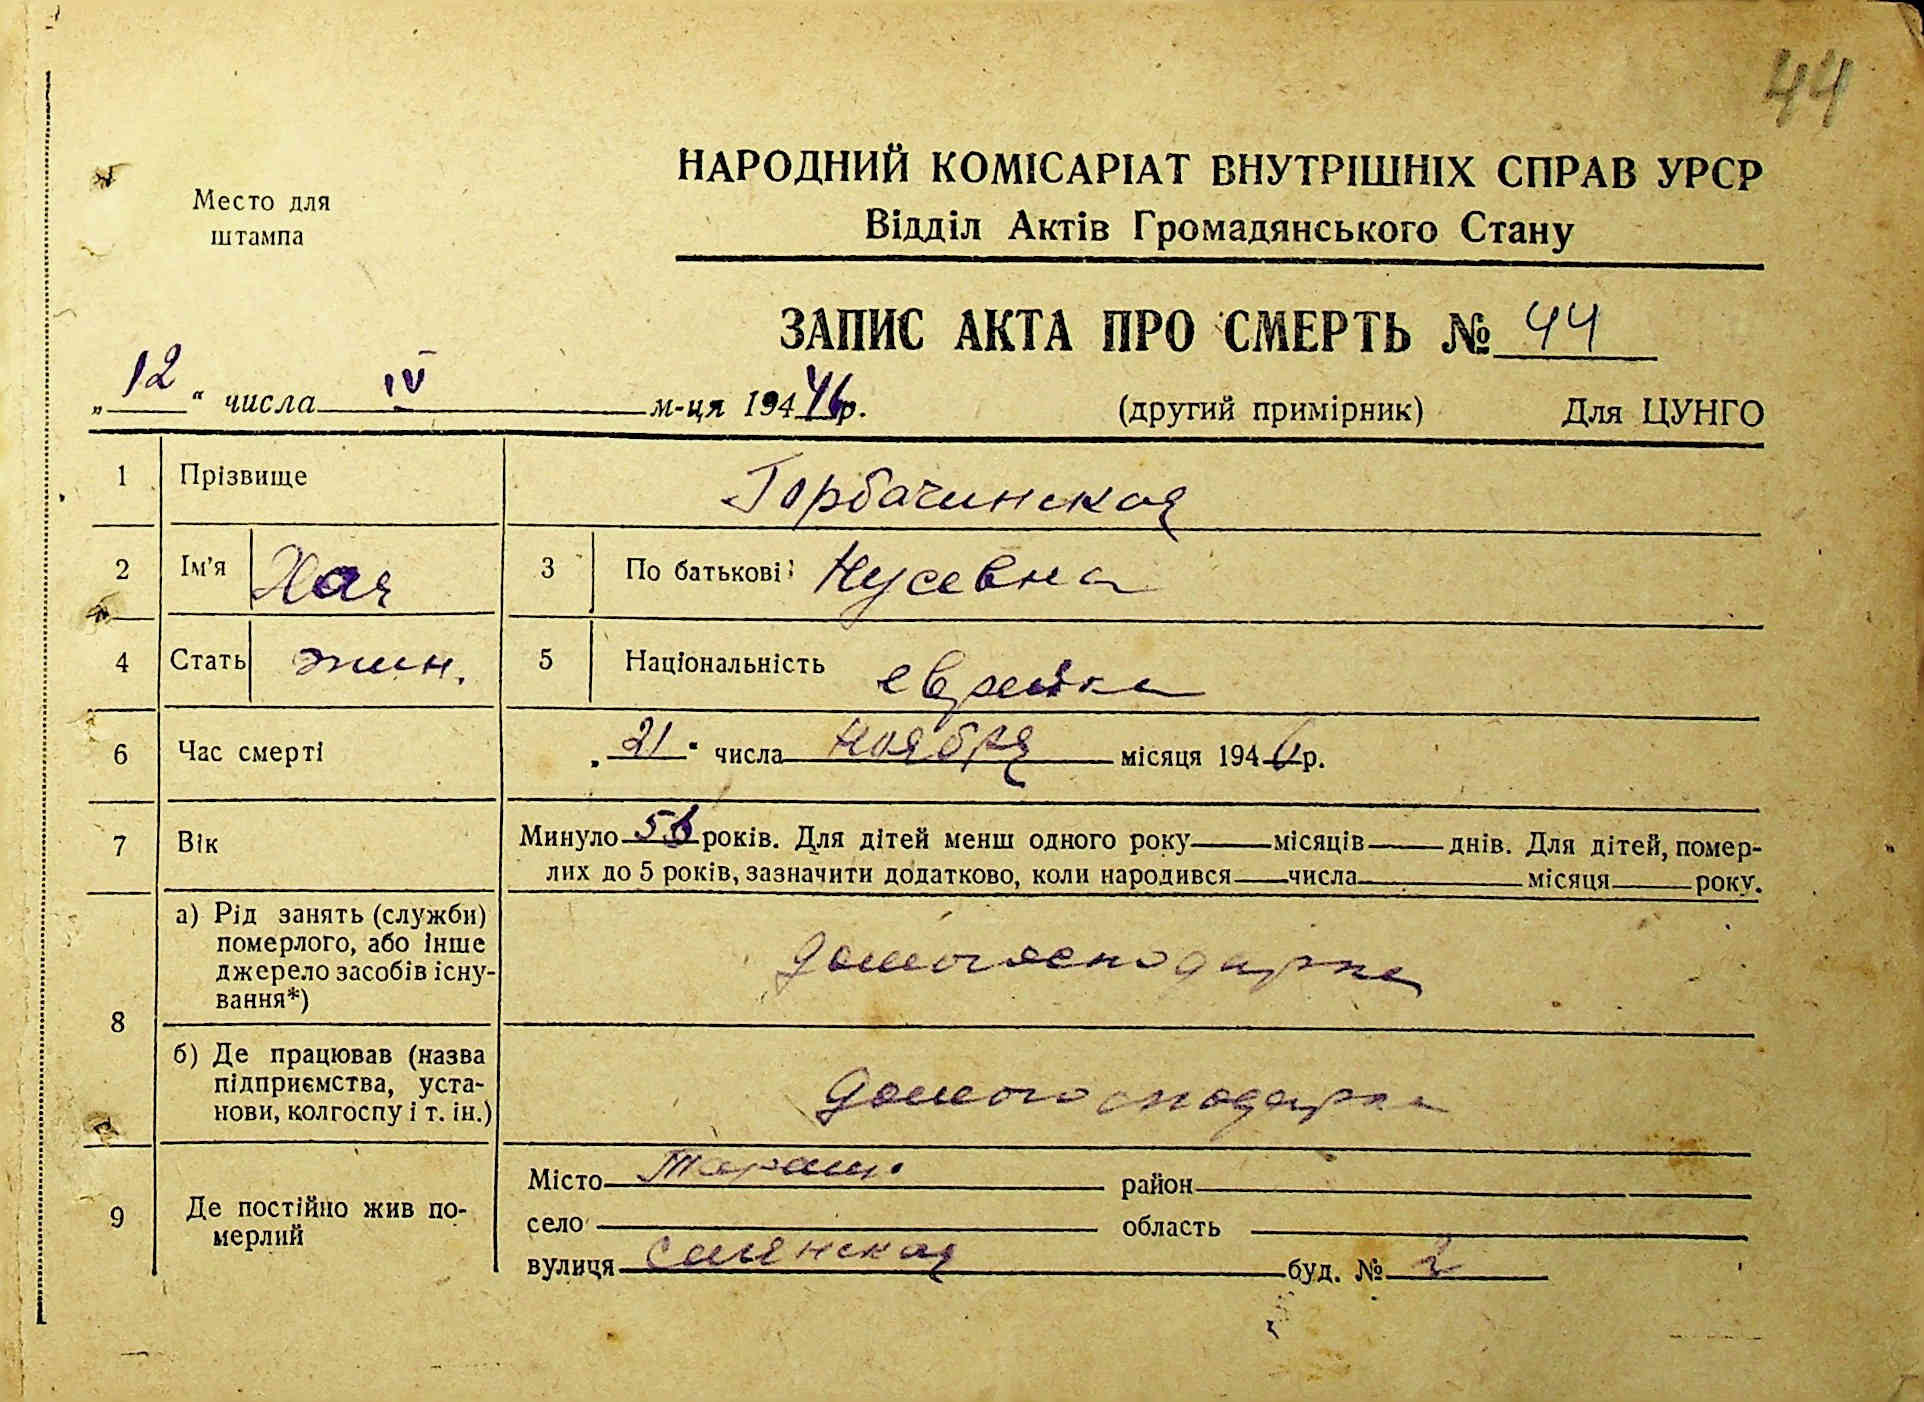 44
Место для
штампа
НАРОДНИЙ КОМІСАРІАТ ВНУТРІШНІХ СПРАВ УРСР
Відділ Актів Громадянського Стану
ЗАПИС АКТА ПРО СМЕРТЬ № 44
„12“ числа IV м-ця 194 46р. (другий примірник) Для ЦУНГО
1 Прізвище Горбачинская
2 Ім'я Хая 3 По батькові Нусевна
4 Стать жин. 5 Національність еврейка
6 Час смерті „21“ числа ноября місяця 194 р.
7 Вік Минуло 56 років. Для дітей менш одного року місяців днів. Для дітей, помер-
лих до 5 років, зазначити додатково, коли народився числа місяця року.
8 а) Рід занять (служби)
померлого, або інше
джерело засобів існу-
вання*) домогосподарка
б) Де працював (назва
підприємства, уста-
нови, колгоспу і т. ін.) домогосподарка
9 Де постійно жив по-
мерлий
Місто Тараща район
село область
вулиця буд. № 2